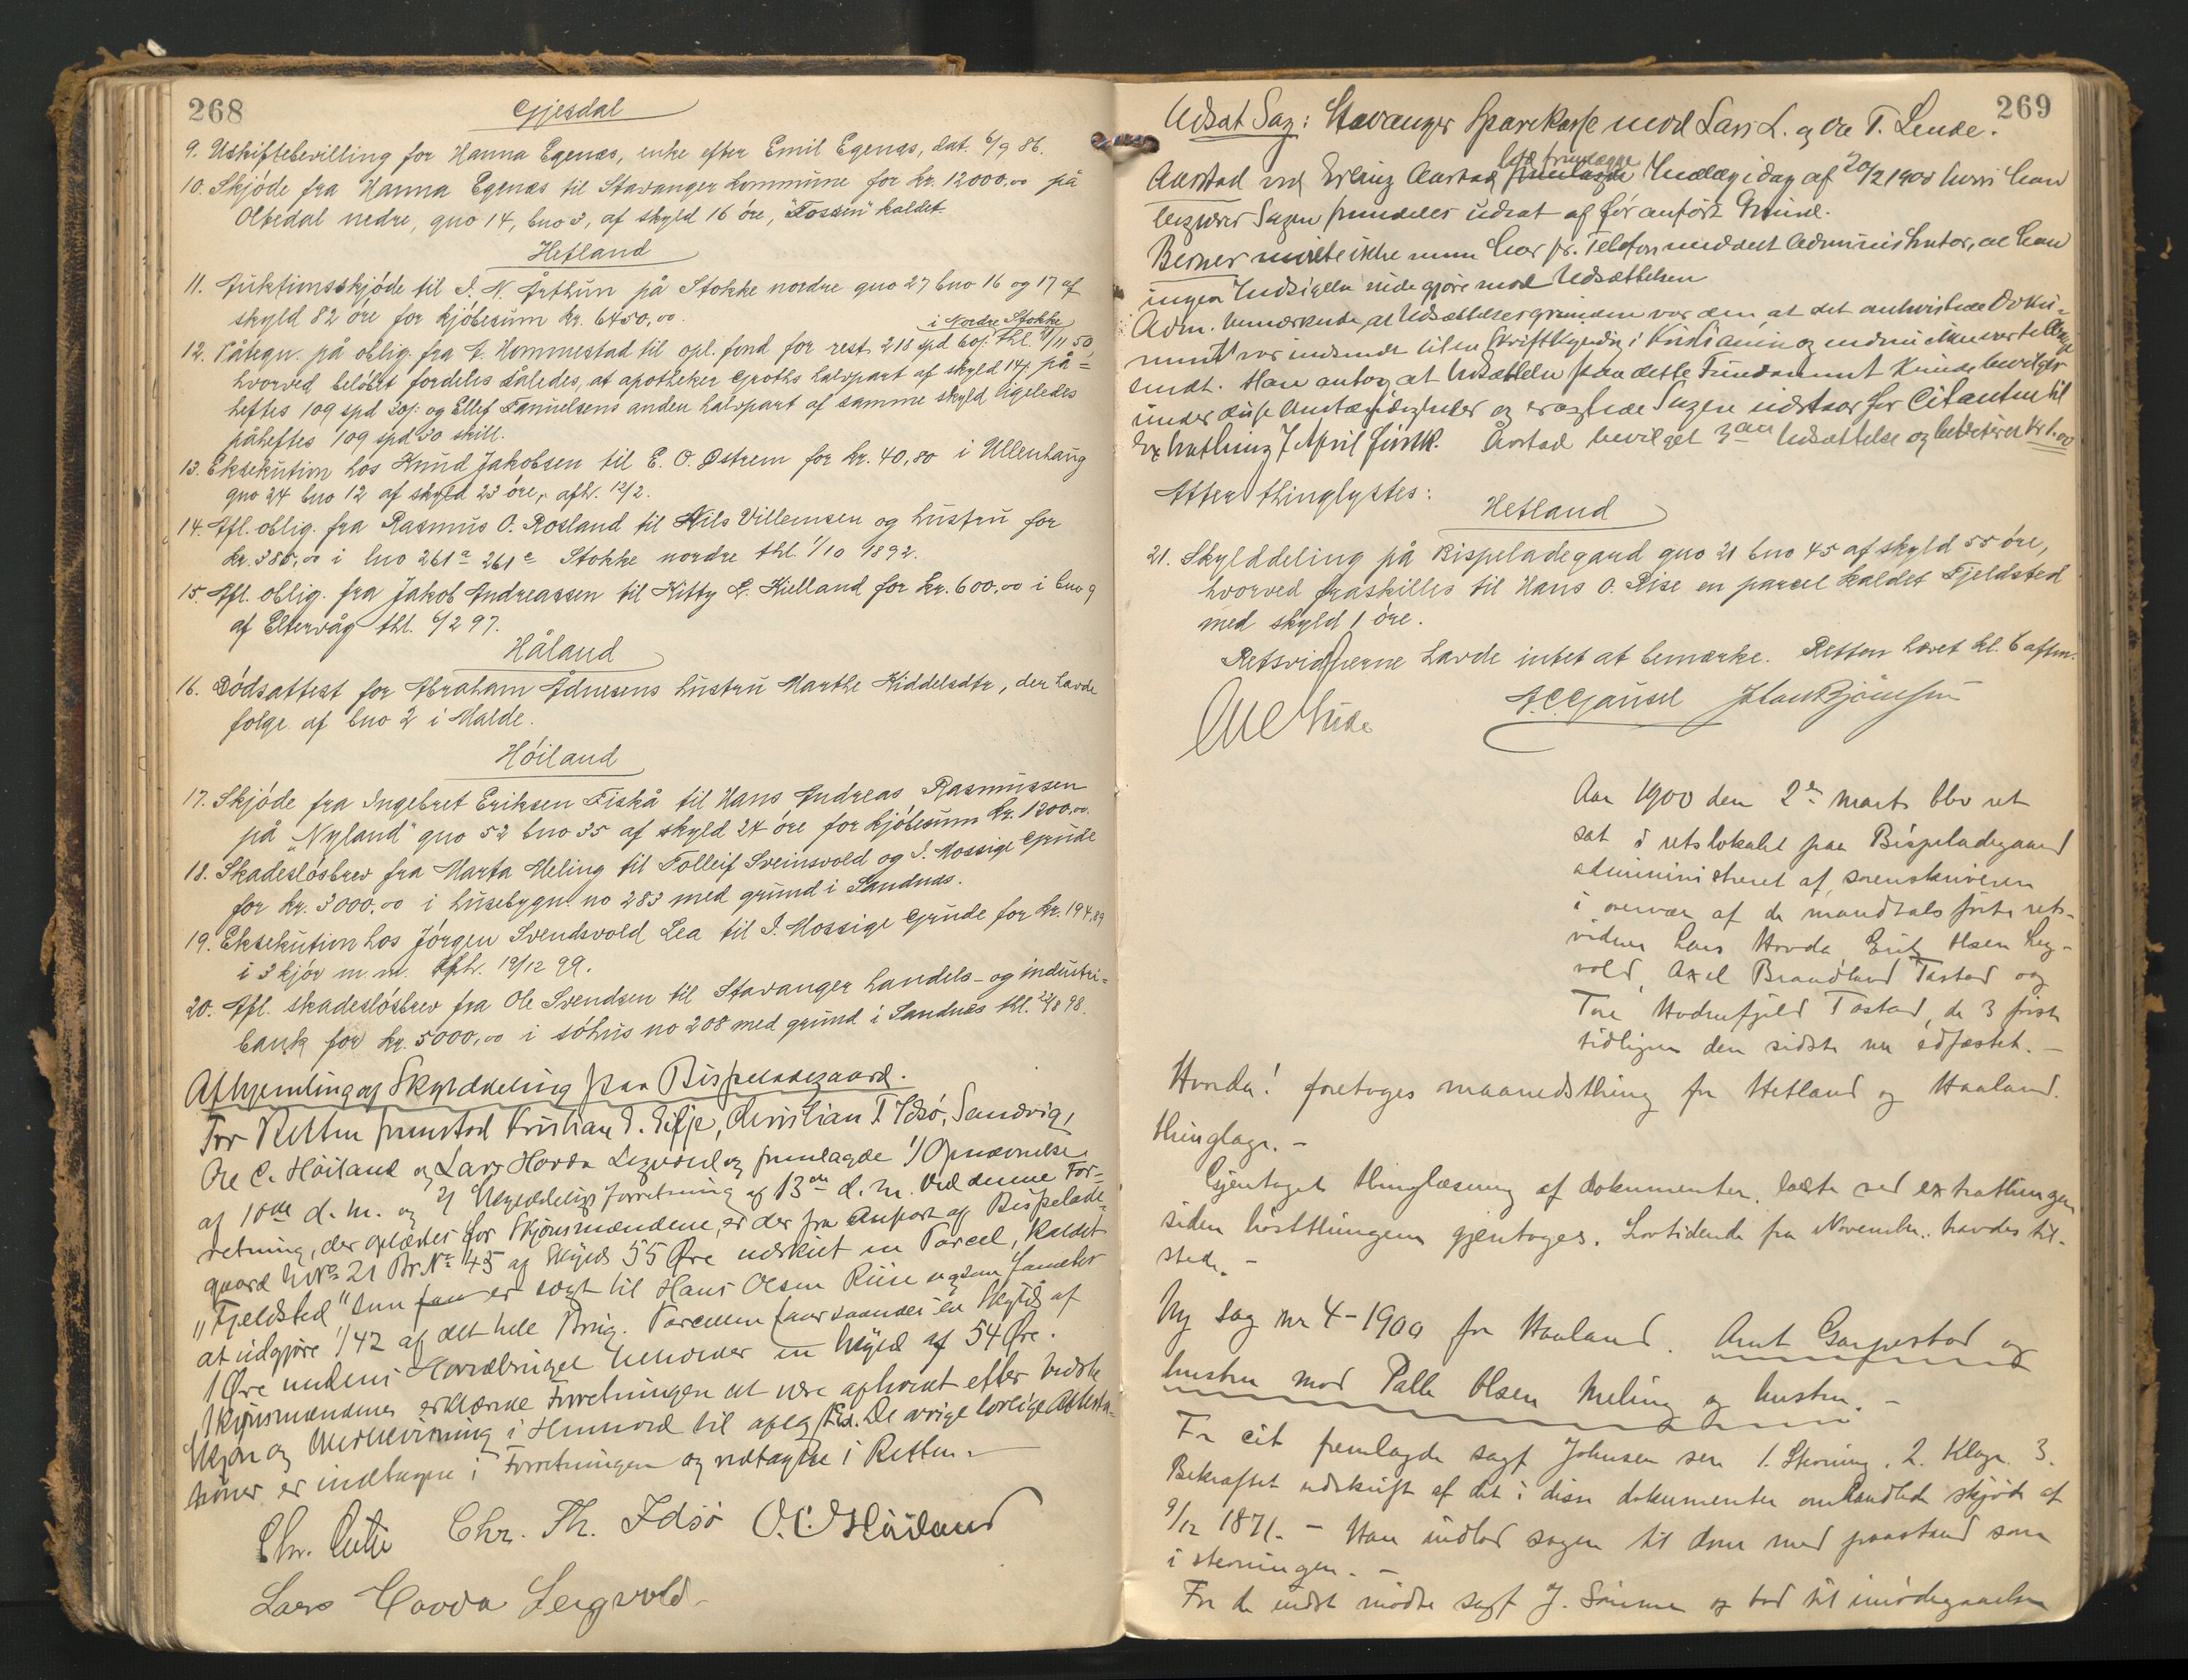 268
Gjesdal
9. Uskiftebevilling for Hanna Egenæs, enke efter Emil Egenæs, dat. 6/9 86.
10. Skjöde fra Hanna Egenæs til Stavanger kommune for kr. 12000,00 på
Oltedal nedre, gno 14, bno 3, af skyld 16 öre, "Fossen" kaldet.
Hetland
11. Auktionsskjöde til I. N. Årthun på Stokke nordre gno 27 bno 16 og 17 af
skyld 82 öre for kjöbesum kr. 6450,00.
i Nordre Stokke
12. Påtegn. på oblig. fra A. Hommestad til opl. fond for rest 218 spd 60 s. thl. 11/11 50,
hvorved belöbet fordeles således, at apotheker Groths halvpart af skyld 14 s. på=
heftes 109 spd 30 s. og Ellef Tanuelsens anden halvpart af samme skyld ligeledes
påheftes 109 spd 30 skill.
13. Eksekution hos Knud Jakobsen til E. O. Østrem for kr. 40,80 i Ullenhaug
gno 24 bno 12 af skyld 23 öre, afh. 12/2.
14. Afl. oblig. fra Rasmus O. Rosland til Nils Villemsen og hustru for
kr. 385,00 i lno 261a 261c Stokke nordre thl. 1/10 1892.
15. Afl. oblig. fra Jakob Andreassen til Kitty L. Kielland for kr. 600,00 i bno 9
af Eltervåg thl. 6/2 97.
Håland
16. Dödsattest for Abraham Ådnesens hustru Marthe Kiddelsdtr, der havde
folge af bno 2 i Malde.
Höiland
17. Skjöde fra Ingebret Eriksen Fiskå til Hans Andreas Rasmussen
på "Nyland" gno 52 bno 35 af skyld 24 öre for kjöbesum kr. 1200,00.
18. Skadeslösbrev fra Marta Meling til Tolleif Sveinsvold og I. Mossige Grude
for kr. 3000,00 i husebygn. no 283 med grund i Sandnæs.
19. Eksekution hos Jörgen Svendsvold Lea til I. Mossige Grude for kr. 194,89
i 3 kjör m. m. Afh. 19/12 99.
20. Afl. skadeslösbrev fra Ole Svendsen til Stavanger handels- og industri=
bank for kr. 5000,00 i söhus no 208 med grund i Sandnæs thl. 22/8 98.
Afhjemling af Skylddeling paa Bispeladegaard.
For Retten fremstod Kristian T. Eltje, Christian T. Idsö, Sandvig,
Ole C. Höiland og Lars Hovda Legvold og fremlagde 1/ Opnævnelse
af 10de d. M. og 2/ Skylddelingsforretning af 13de d. M. Ved denne For=
retning, der oplæstes for Skjönsmændene, er der fra Anpart af Bispelade=
gaard G.No 21 Br.No 45 af Skyld 55 Öre udskilt en Parcel, kaldet
"Fjeldsted" som er solgt til Hans Olsen Riise og som fandtes
at udgjøre 1/42 af det hele Brug. Parcellen faar saaledes en Skyld af
1 Öre medens Hovedbruget beholder en Skyld af 54 Öre.
Skjönsmændene erklærede Forretningen at være afholdt efter bedste
Skjön og Overbevisning i Henhold til aflagt Ed. De övrige lovlige Attesta=
tioner er indtagne i Forretningen og vedtagne i Retten.
Chr. Eltje Chr. Th. Idsö O. C. Höiland
Lars Hovda Legvold
269
Udsat Sag: Stavanger Sparekasse mod Lars L. og Ole T. Lende.
lod fremlægge
Aarstad ved Erling Aarstad fremlagde Indlæg idag af 20/2 1900 hvori han
begjærer Sagen fremdeles udsat af för anfört Grund.
Berner mödte ikke men har pr. Telefon meddelt Administrator, at han
ingen Indsigelse vilde gjøre mod Udsættelsen
Adm. bemærkede, at Udsættelsesgrunden var den at det omtvistede Doku=
ment var indsendt til en Skriftkyndig i Kristiania og endnu ikke var tilbage
sendt. Han antog at Udsættelse paa dette Fundament kunde bevilges
under disse Omstændigheder og eragtede Sagen udstaar for Citanten til
Extrathing 7 April förstk. Årstad bevilget 3die Udsættelse og betalte Kr 1.00
Atter thinglystes:
Hetland
21. Skylddeling på Bispeladegaard gno 21 bno 45 af skyld 55 öre,
hvorved fraskilles til Hans O. Rise en parcel kaldet Fjeldsted
med skyld 1 öre.
Retsvidnerne havde intet at bemærke. Retten hævet kl. 6 aftm.
A. C. Gausel
Aar 1900 den 2den marts blev ret
sat i retslokalet paa Bispeladegaard
administreret af sorenskriveren
i overvær af de mandtalsförte rets-
vidner Lars Hovda Erik Olsen Leg-
vold, Axel Brandland Tastad og
Tore Hodnefjeld Tastad, de 3 förste
tidligere den sidste nu edfæstet. —
Hvorda! foretoges maanedsthing for Hetland og Haaland.
thinglage. —
Gjentaget thinglæsning af dokumenter, læste ved extrathingen
siden höstthingene gjentoges. Lovtidende fra November havdes til-
stede. —
Ny sag nr 4-1900 for Haaland. Amt Garpestad og
hustru mod Palle Olsen Meling og hustru. —
For cit fremlagde sagf Johnsen sen 1. Stevning. 2. Klage. 3.
Bekræftet udskrift af det i disse dokumenter omhandlede skjöde af
9/12 1871. — Han indlod sagen til dom med paastand som
i stevningen. —
For de indst mödte sagf J. Sömme og bad til imödegaaelse